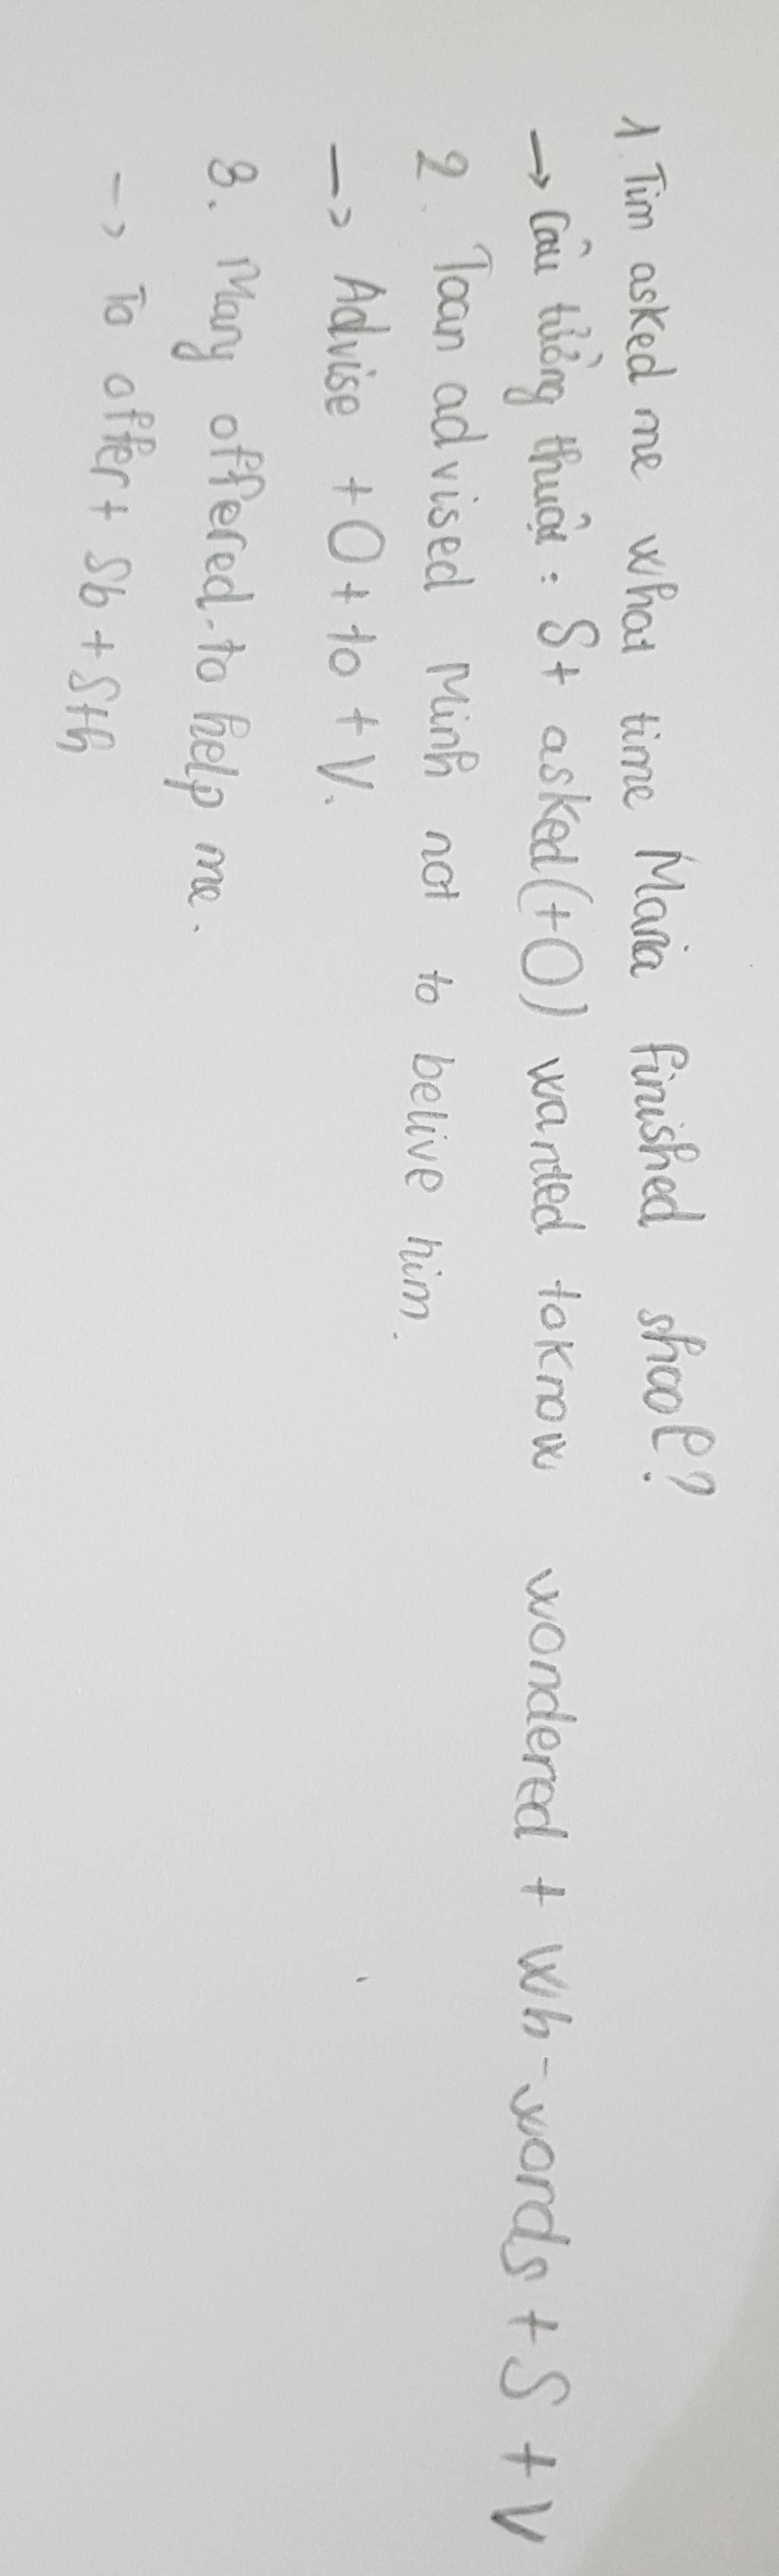 1. Tim asked me what time Maria finished shool?
→ Câu tường thuật : S + asked (+O) wanted to know wondered + Wh-words + S + V
2. Toan advised Minh not to belive him.
→ Advise + O + to + V.
3. Mary offered to help me.
→ To offer + Sb + Sth